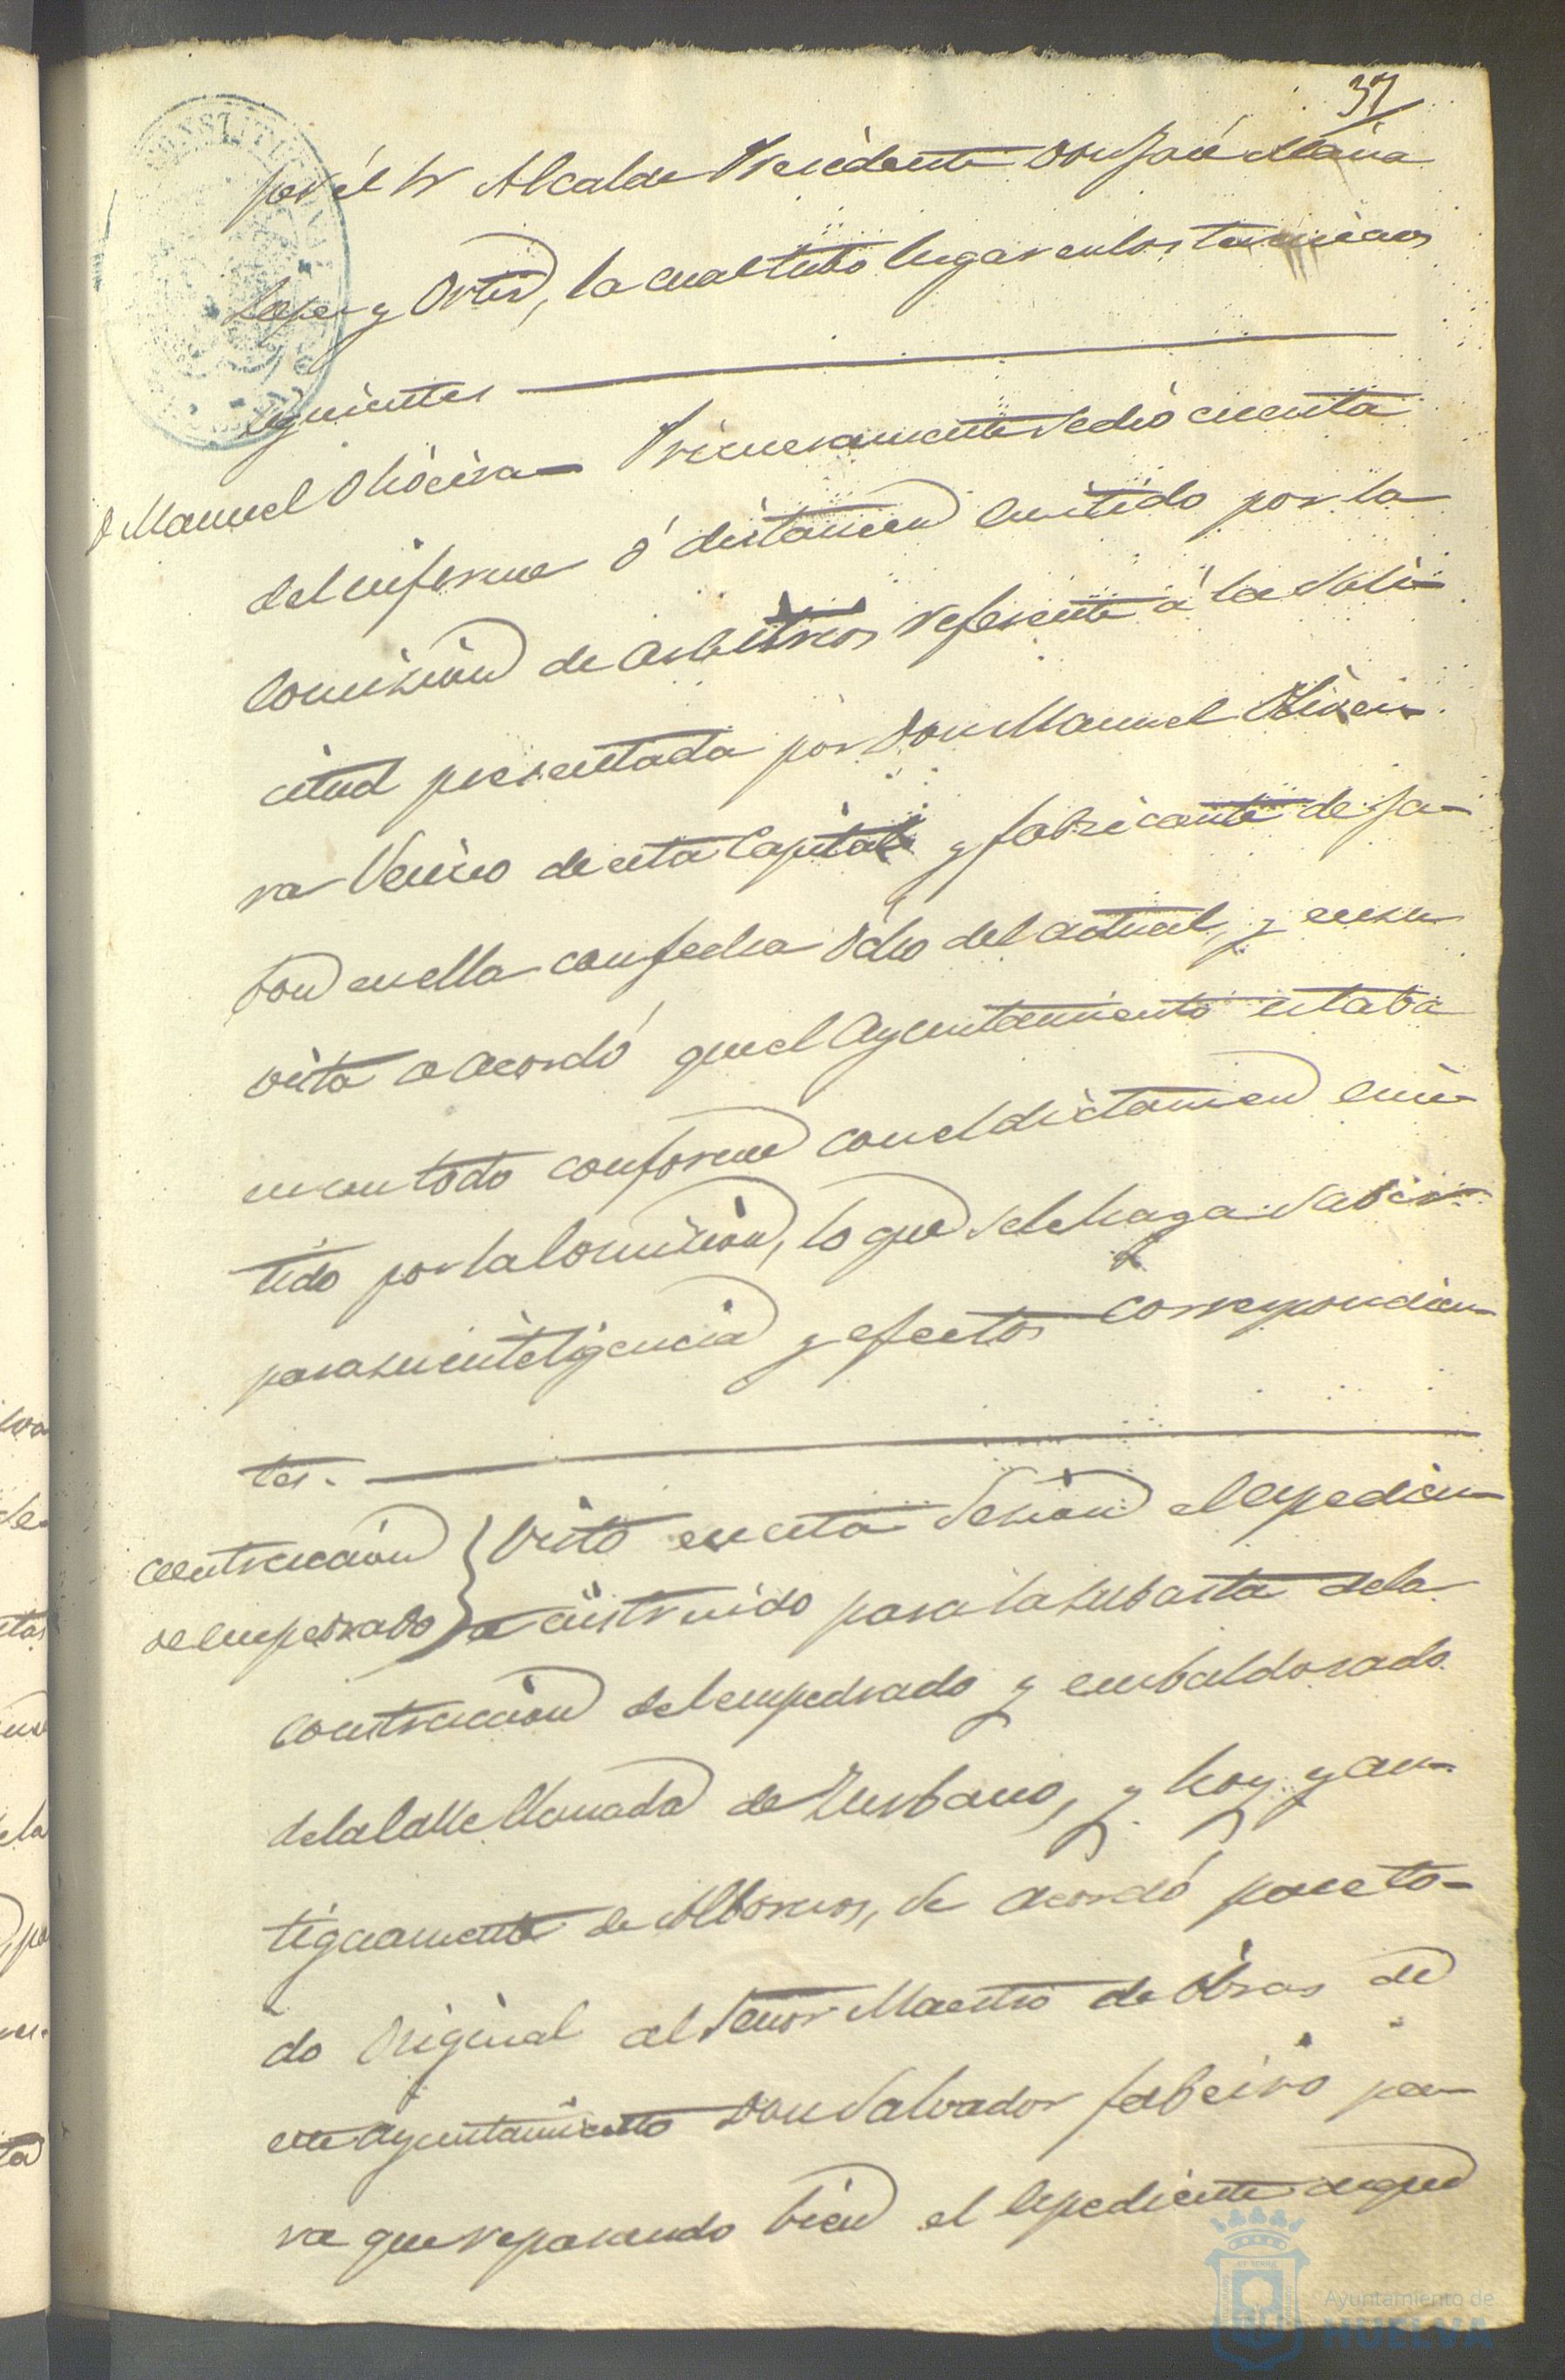 37
por él Sr Alcalde Precidente Don José Maria
Lopez y Ortiz, la cual tubo lugar en los terminos
siguientes
D Manuel Oliveira Primeramente se dió cuenta
del informe ó dictamen emitido por la
Comision de arbitrios referente á la Soli-
citud presentada por Don Manuel Olivei-
ra Vecino de esta Capital y fabricante de ja-
bon en ella con fecha Ocho del actual, y en su
vista se acordó que el Ayuntamiento estaba
en un todo conforme con el dictamen emi-
tido por la Comision, lo que se le haga saber
para su inteligencia y efectos correspondien-
tes.
Contruccion } Visto en esta Sesion el espedien-
del empedrado } te instruido para la subasta de la
contruccion del empedrado y embaldosado
de la Calle llamada de Zurbano, y hoy y an-
tiguamente de Albornos, se acordó pace to-
do Original al Señor Maestro de Obras de
este Ayuntamiento Don Salvador Sabeiro pa-
ra que repasando bien el Espediente de que
CONSTITU
Ayuntamiento de
HUELVA